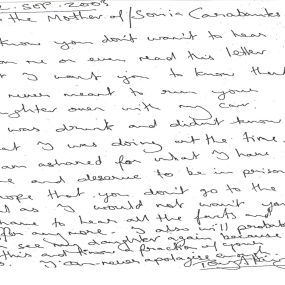 SEP. 2003
the Mother of Sonia Carabanks
know you don't want to hear
me or even read this letter
I want you to know that
never meant to run your
over with my car.
was drunk and didn't know
I was doing at the time.
am ashamed for what I have
and deserve to be in prison
hope that you don't go to the
as I would not want you
to hear all the facts and
for any more. I also will probably
see my daughter again because
this and know a fraction of your
I can never apologise enough